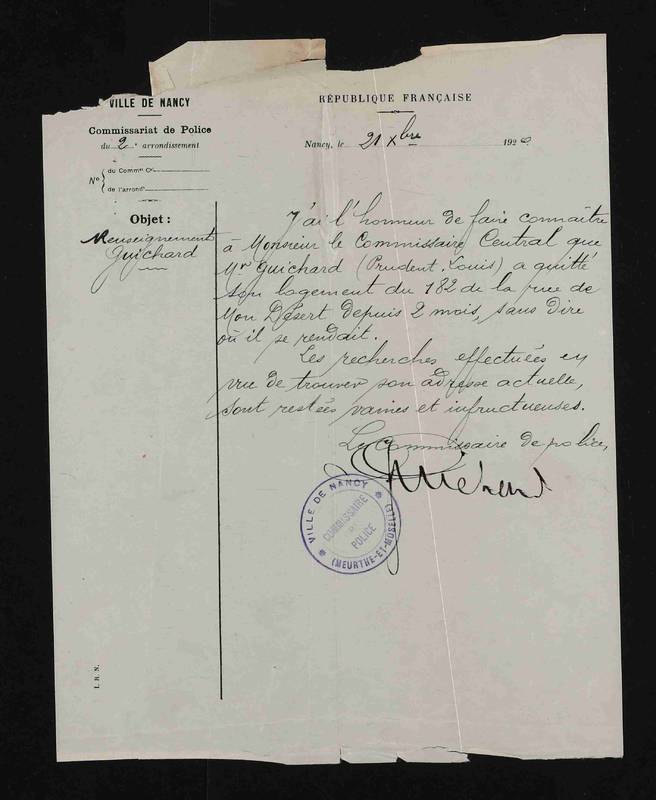 VILLE DE NANCY
Commissariat de Police
du 2e arrondissement
No du Commre Cal
de l'arrondt
Objet :
Renseignements
Guichard
RÉPUBLIQUE FRANÇAISE
Nancy, le 21 Xbre 192
J'ai l'honneur de faire connaître
à Monsieur le Commissaire Central que
Mr Guichard (Prudent, Louis) a quitté
son logement du 182 de la rue de
Mon Désert depuis 2 mois, sans dire
où il se rendait.
Les recherches effectuées en
vue de trouver son adresse actuelle,
sont restées vaines et infructueuses.
Le Commissaire de police,
VILLE DE NANCY
COMMISSAIRE
DE
POLICE
(MEURTHE-ET-MOSELLE)
I. R. N.